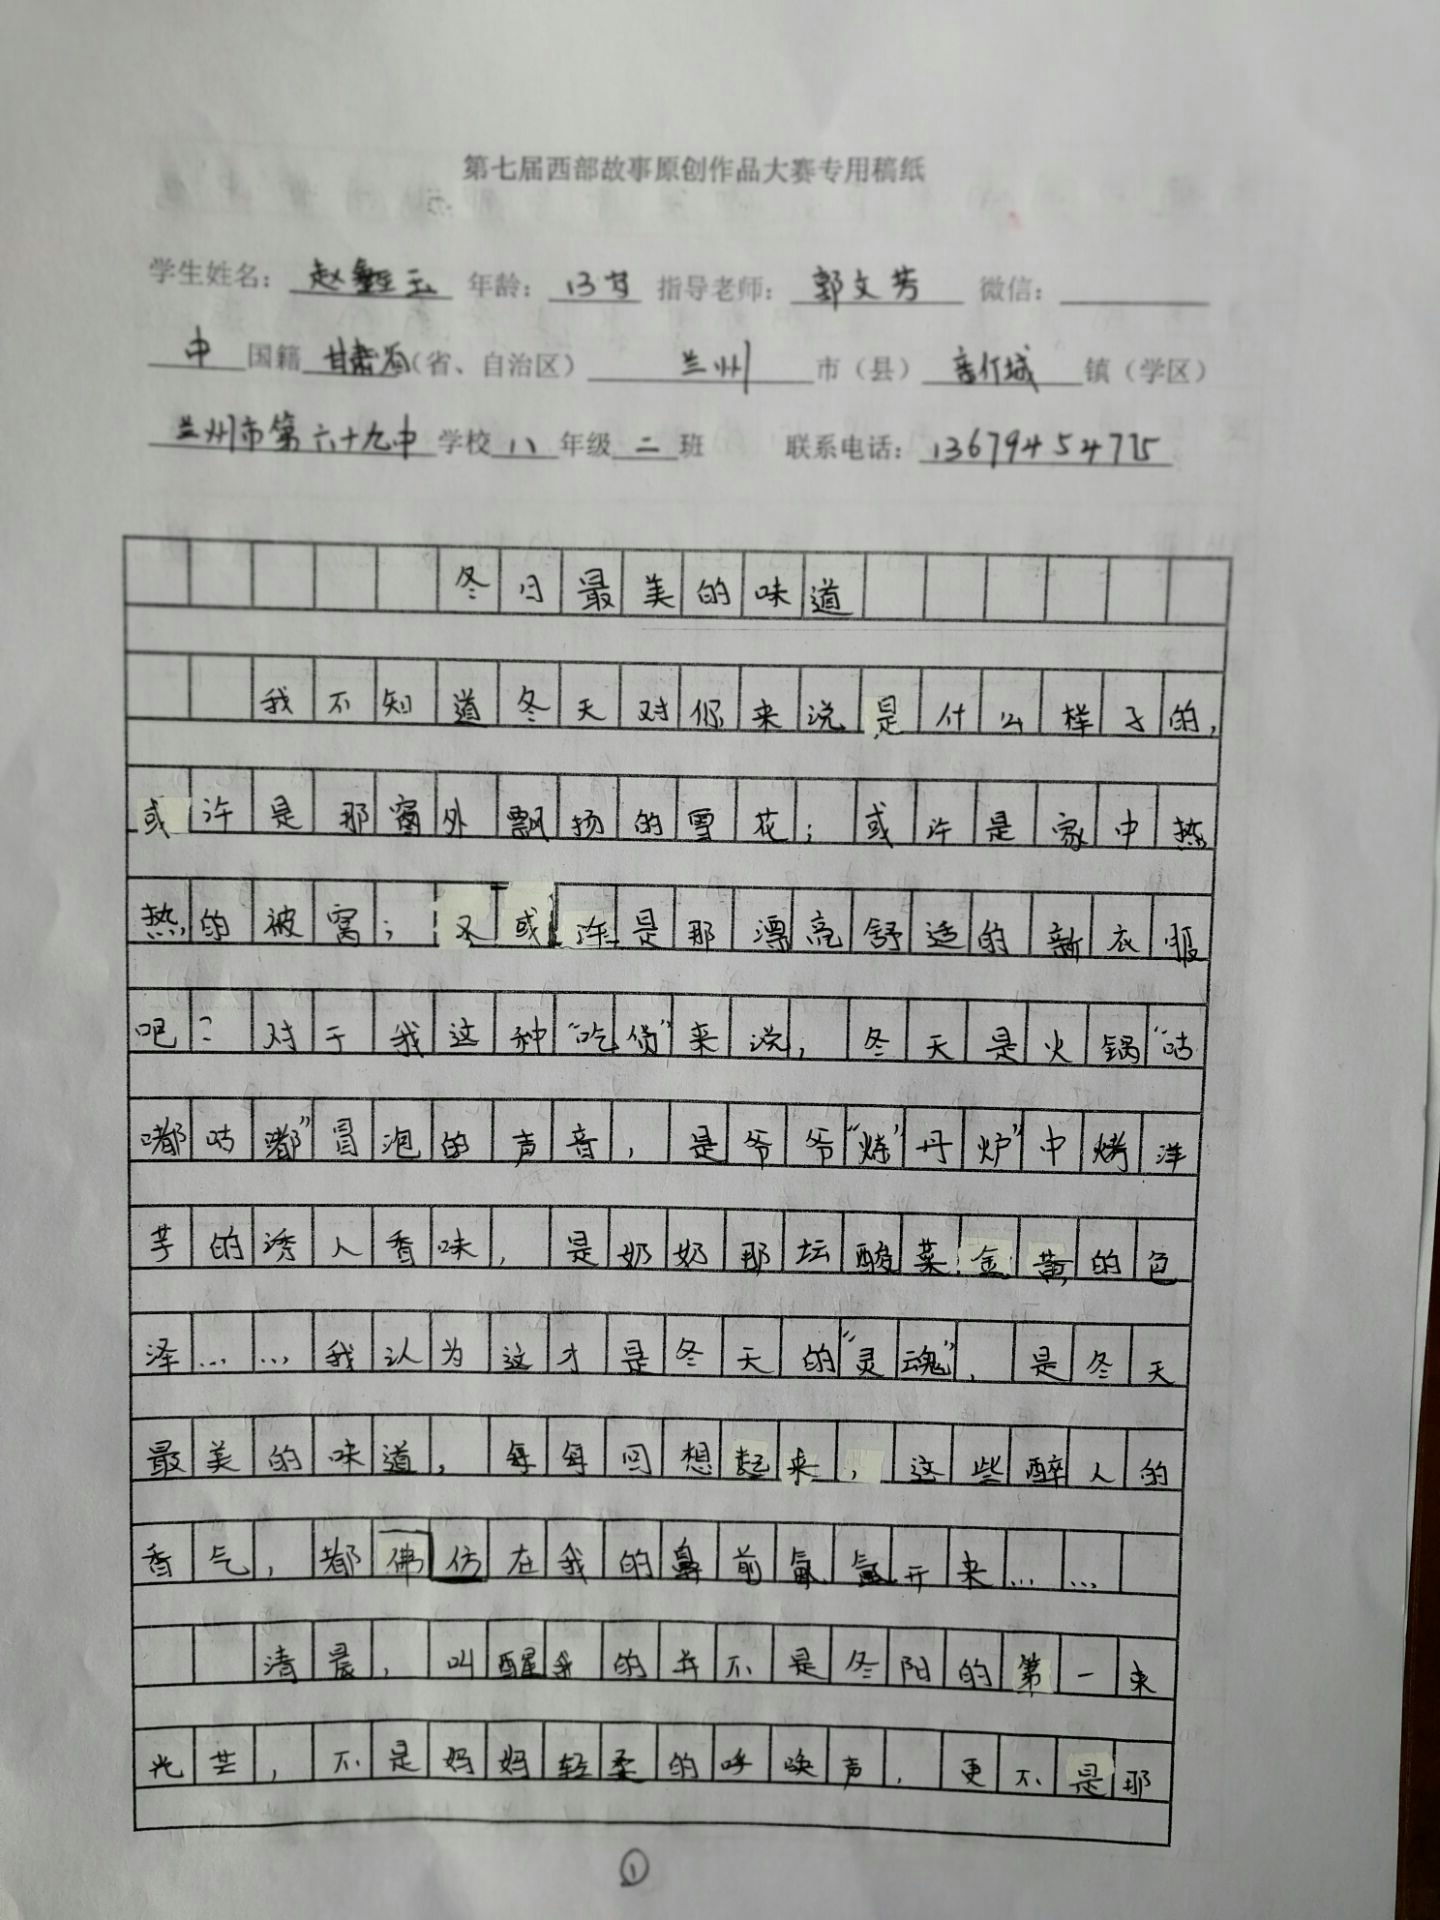 第七届西部故事原创作品大赛专用稿纸
学生姓名：赵 玉 年龄：13岁 指导老师：郭文芳 微信：
中 国籍 甘肃省（省、自治区） 兰州 市（县） 新城 镇（学区）
兰州市第六十九中 学校 八 年级 二 班 联系电话：13679454775
冬日最美的味道
我不知道冬天对你来说是什么样子的，
或许是那窗外飘扬的雪花；或许是家中热
热的被窝；又或许是那漂亮舒适的新衣服
吧？对于我这种“吃货”来说，冬天是火锅“咕
嘟咕嘟”冒泡的声音，是爷爷“炼”丹炉”中烤洋
芋的诱人香味，是奶奶那坛酸菜金黄的色
泽……我认为这才是冬天的“灵魂”，是冬天
最美的味道，每每回想起来，这些醉人的
香气，都佛仿在我的鼻前氤氲开来……
清晨，叫醒我的并不是冬阳的第一束
光芒，不是妈妈轻柔的呼唤声，更不是那
①